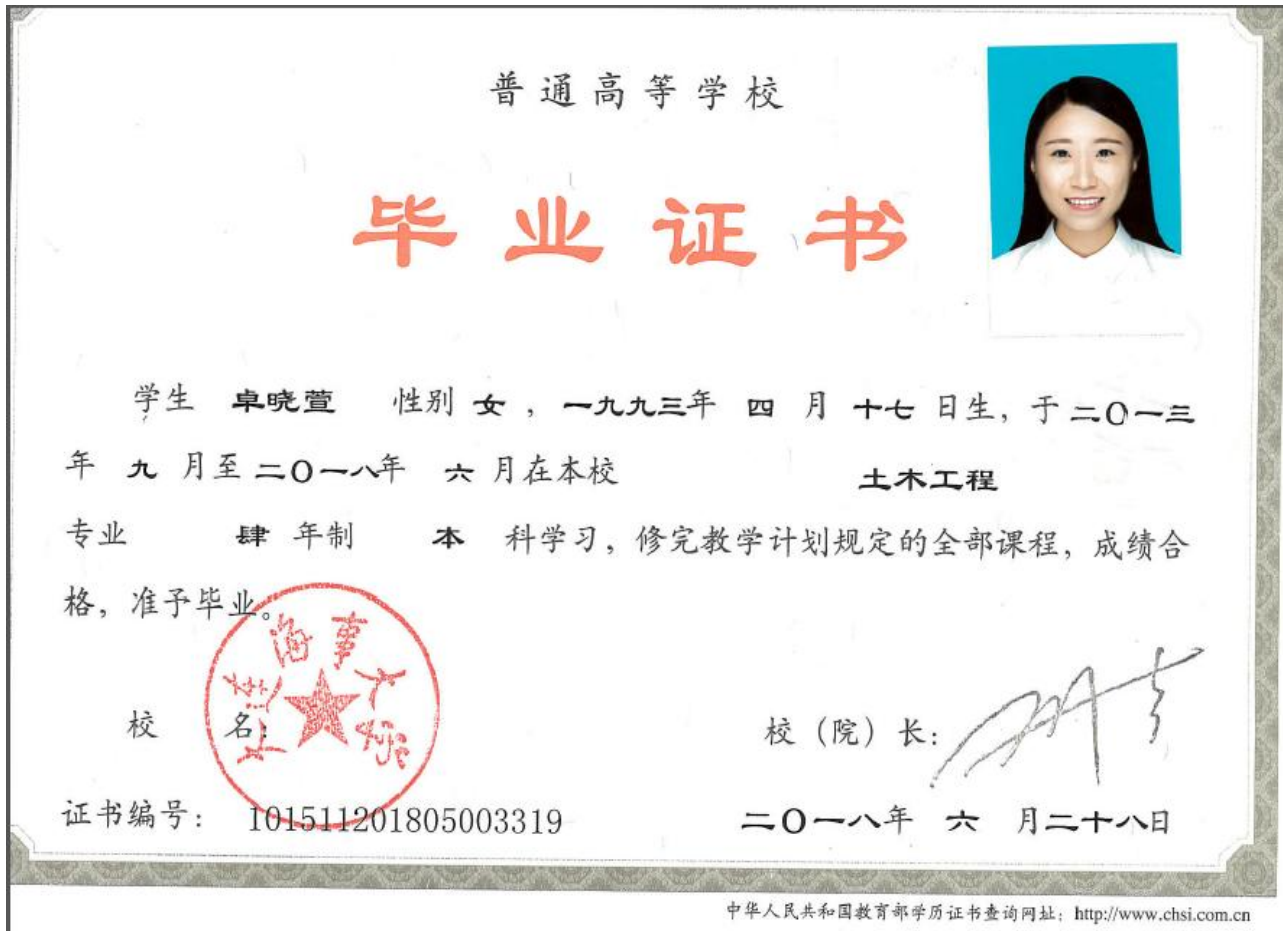 普通高等学校
毕业证书
学生 卓晓萱 性别 女 ，一九九三年 四 月 十七 日生，于 二〇一三
年 九 月至 二〇一八年 六 月在本校 土木工程
专业 肆 年制 本 科学习，修完教学计划规定的全部课程，成绩合
格，准予毕业。
大连海事大学
校 名： 校（院）长：
证书编号： 101511201805003319 二〇一八年 六 月二十八日
中华人民共和国教育部学历证书查询网址：http://www.chsi.com.cn